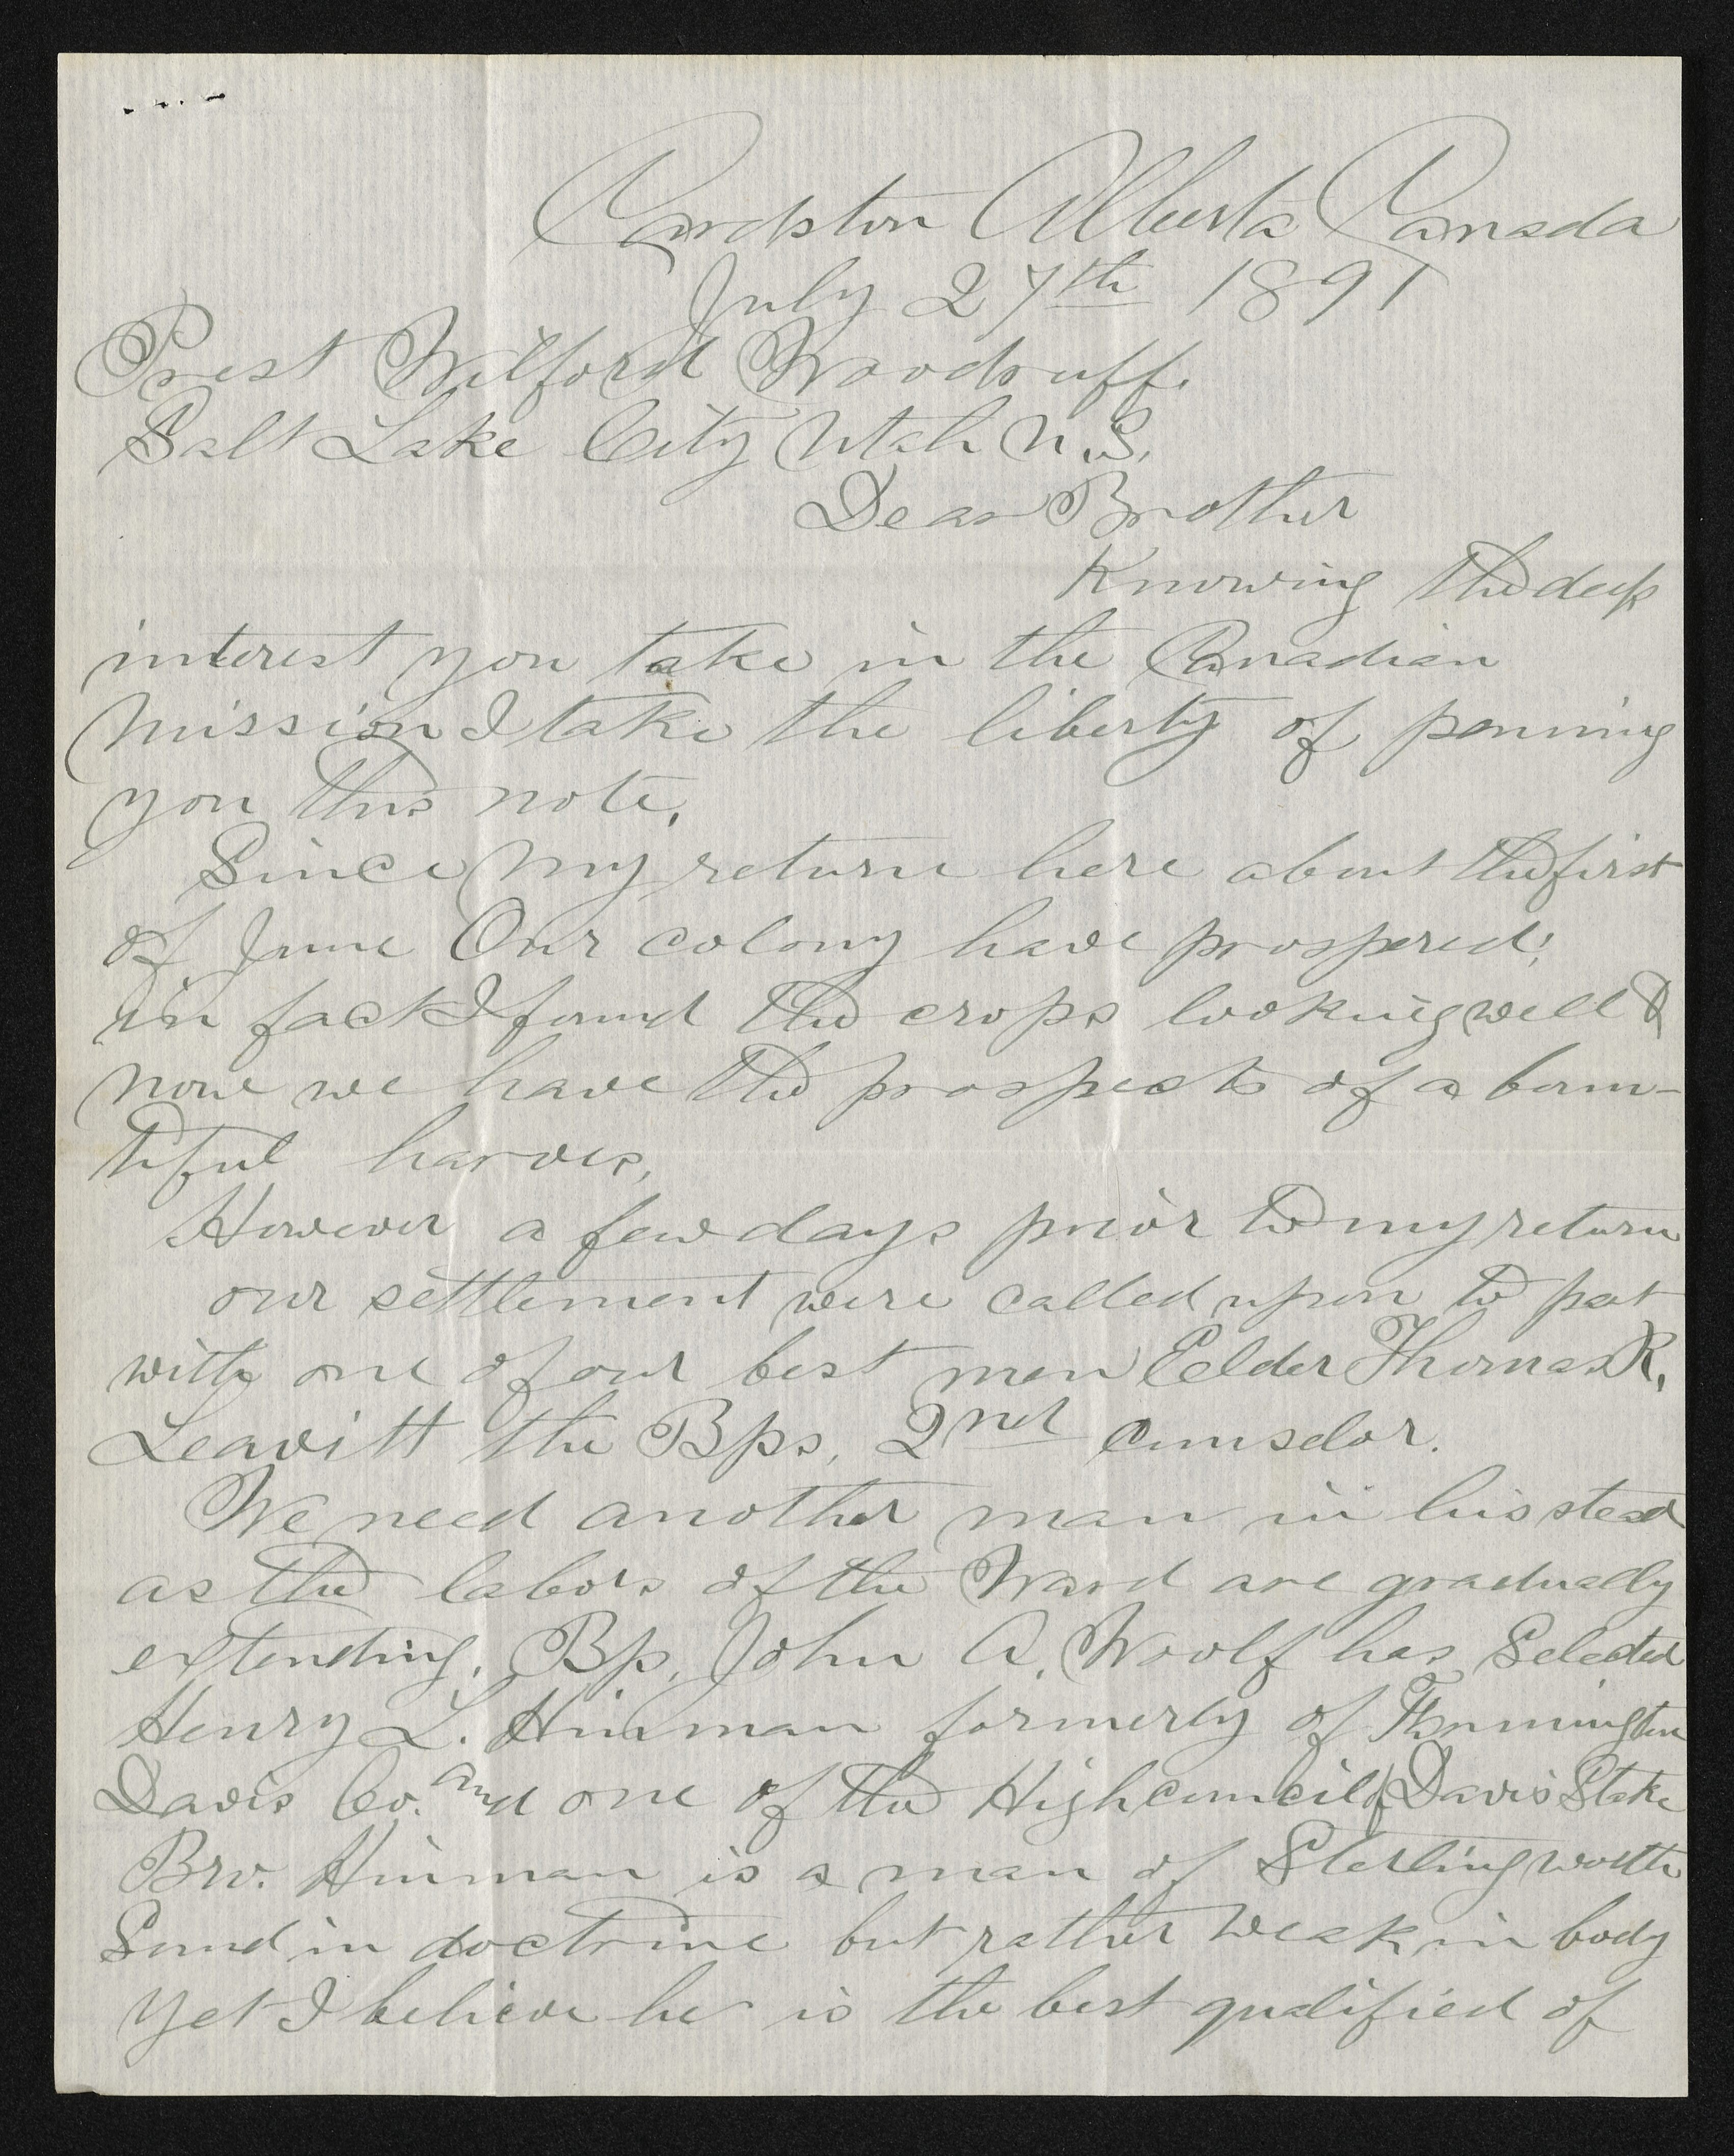 Cardston Alberta Canada
July 27th 1891
Prest Wilford Woodruff.
Salt Lake City Utah U.S.
Dear Brother
Knowing the deep
interest you take in the Canadian
Mission I take the liberty of penning
you this note.
Since my return here about the first
of June Our colony have prospered;
in fact I found the crops looking well &
now we have the prospects of a boun-
tiful harves,
However a few days prior to my return
our settlement were called upon to part
with one of our best men Eelder Thomas R.
Leavitt the Bps. 2nd counselor.
We need another man in his stead
as the labors of the Ward are gradually
extending. Bp. John A. Woolf has Selected
Henry L. Hinman formerly of Farmington
Davis Co. and one of the High council of Davis Stake
Bro. Hinman is a man of Sterling worth
Sound in doctrine but rather weak in body
yet I believe he is the best qualified of